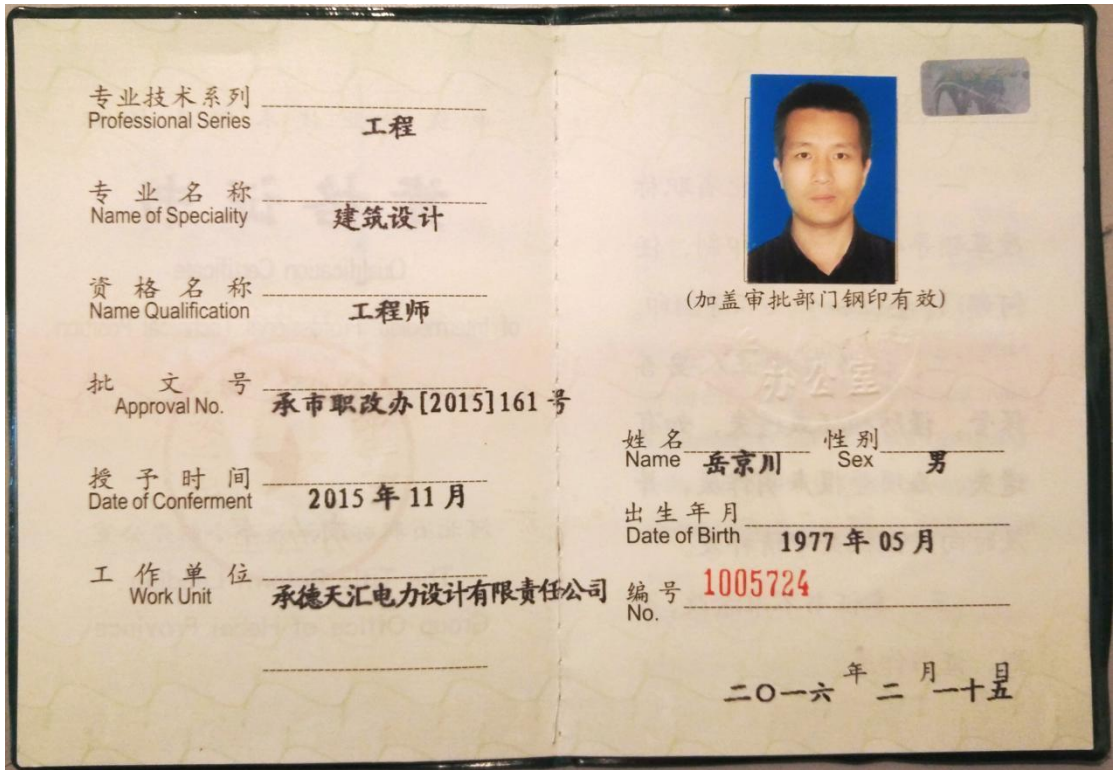 专业技术系列
Professional Series
工程
专业名称
Name of Speciality
建筑设计
资格名称
Name Qualification
工程师
批文号
Approval No.
承市职改办[2015]161号
授予时间
Date of Conferment
2015年11月
工作单位
Work Unit
承德天汇电力设计有限责任公司
(加盖审批部门钢印有效)
办公室
姓名 岳京川 性别 男
Name Sex
出生年月
Date of Birth
1977年05月
编号 1005724
No.
二〇一六年二月一十五日